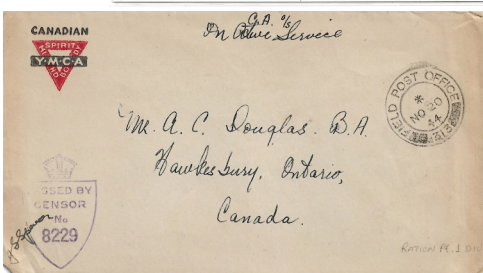 CANADIAN
SPIRIT
MIND BODY
Y·M·C·A
G.A. o/s
On Active Service
FIELD POST OFFICE
*
NO 20
44
Mr. A. C. Douglas. B.A.
Hawkesbury, Ontario,
Canada.
PASSED BY
CENSOR
No
8229
RATION PT. 1 DIV